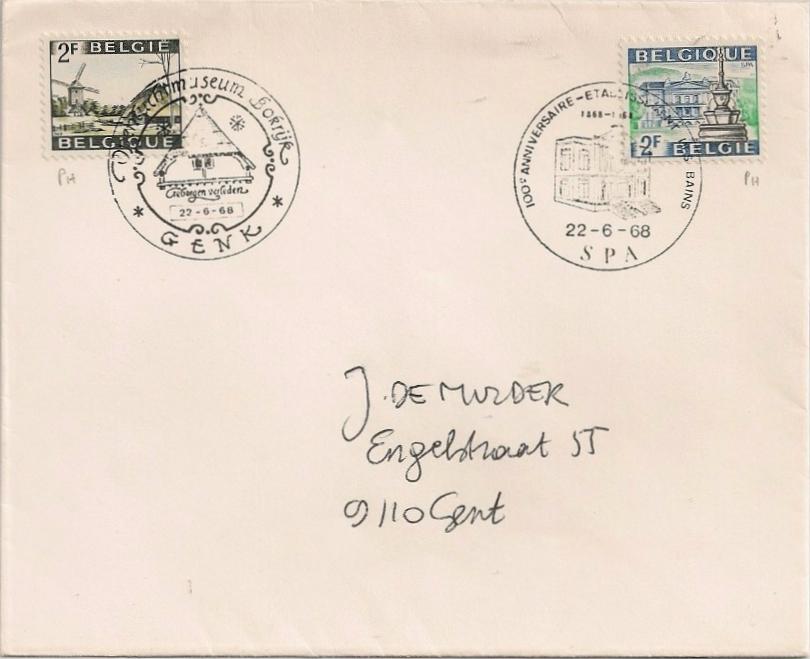 2F BELGIË
BELGIQUE
museum Bokrijk
Geborgen verleden
22-6-68
GENK
PH
BELGIQUE
SPA
2F BELGIË
100e ANNIVERSAIRE - BAINS
22-6-68
SPA
PH
J. DE MULDER
Engelstraat 55
9110 Gent